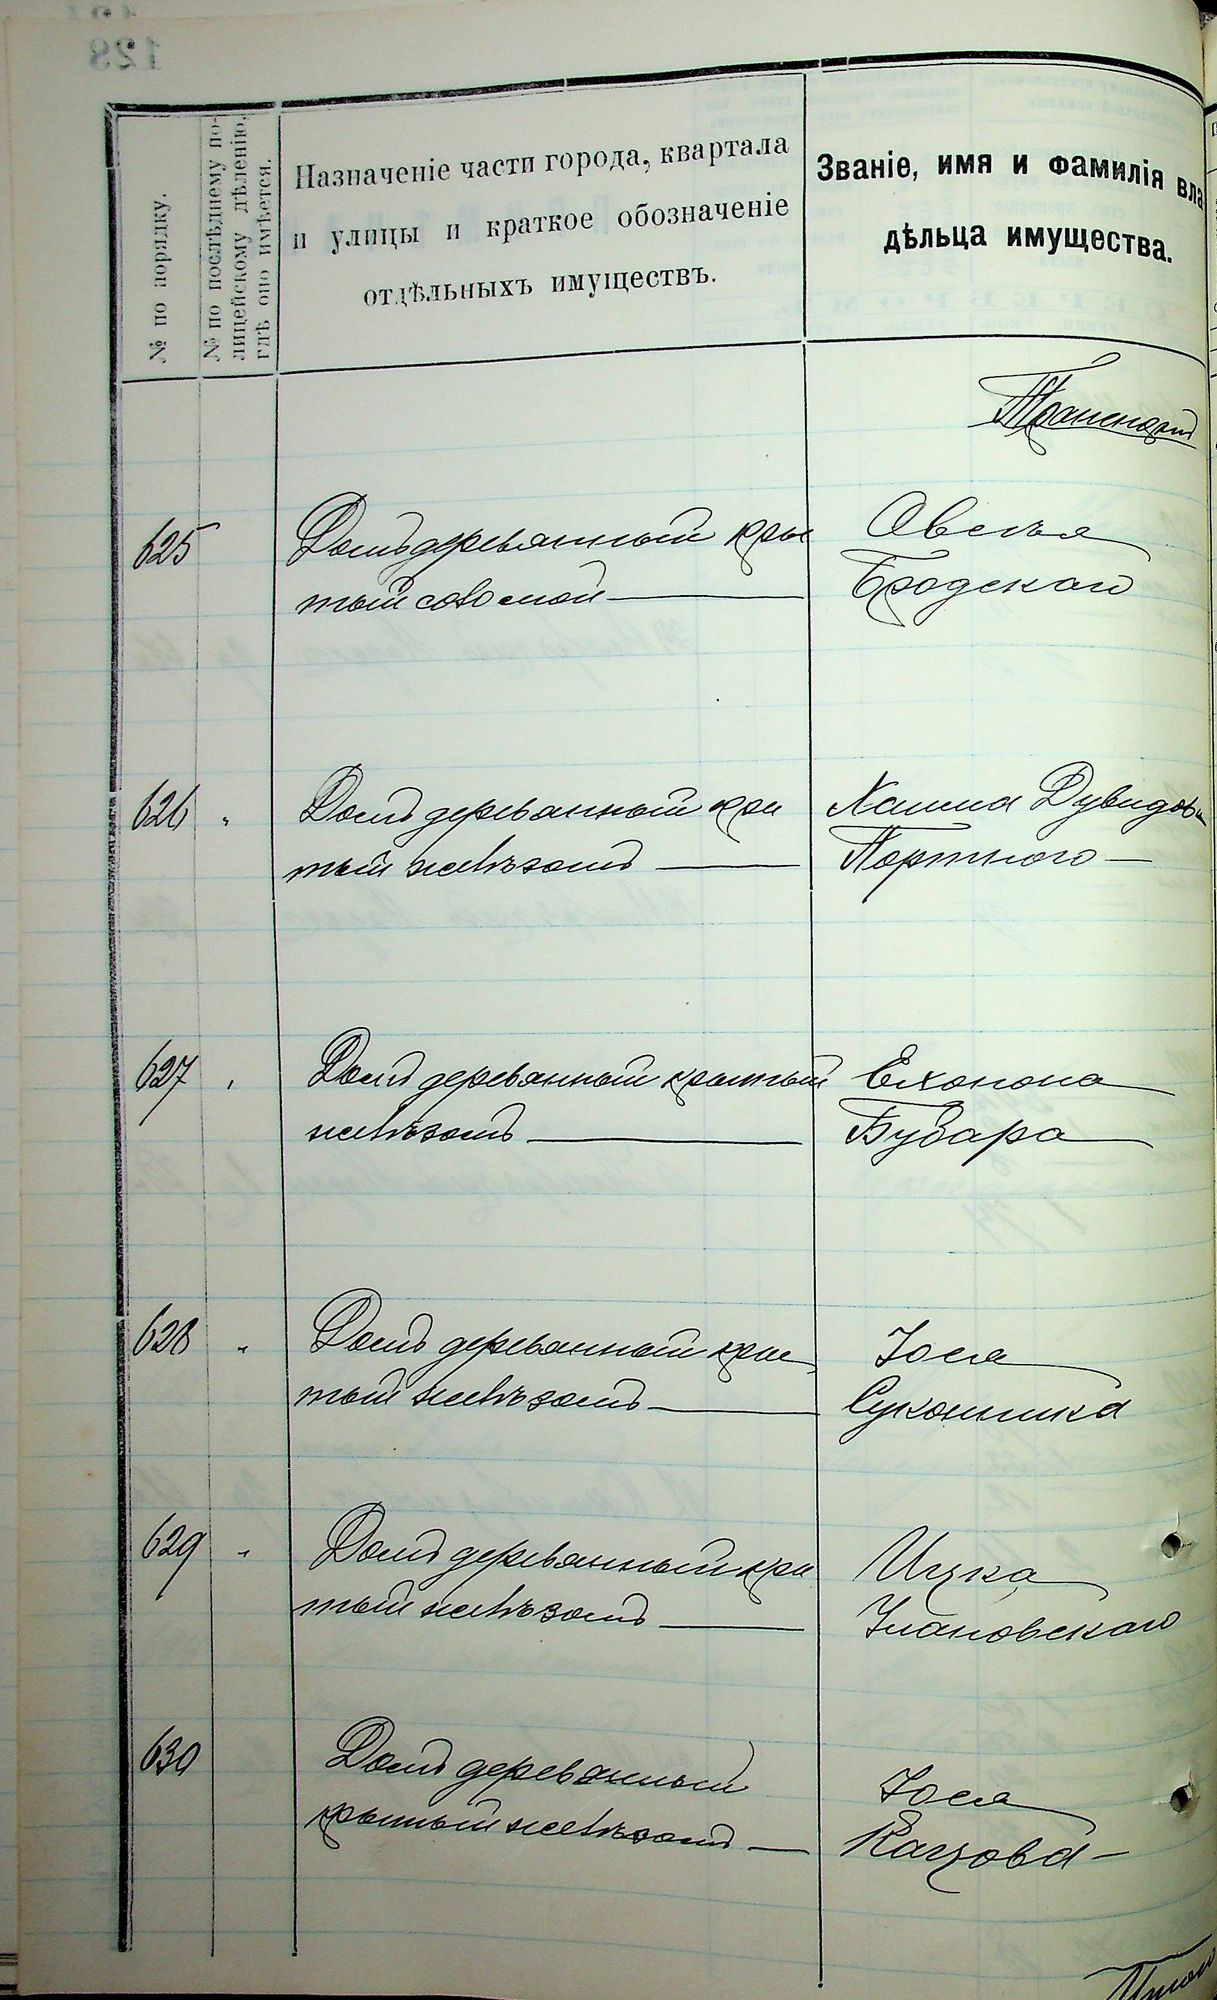 № по порядку.
№ по послѣднему по-
лицейскому дѣленію,
гдѣ оно имѣется.
Назначеніе части города, квартала
и улицы и краткое обозначеніе
отдѣльныхъ имуществъ.
Званіе, имя и фамилія вла
дѣльца имущества.
625
Домъ деревянный кры
тый соломой
Овсѣя
Бродскаго
626 "
Домъ деревянный кры
тый желѣзомъ
Хаима Дувидова
Портного
627 "
Домъ деревянный крытый
желѣзомъ
Елхонона
Бубара
628 "
Домъ деревянный кры
тый желѣзомъ
Іося
Суконника
629 "
Домъ деревянный кры
тый желѣзомъ
Ицка
Улановскаго
630
Домъ деревянный
крытый желѣзомъ
Іося
Кацова